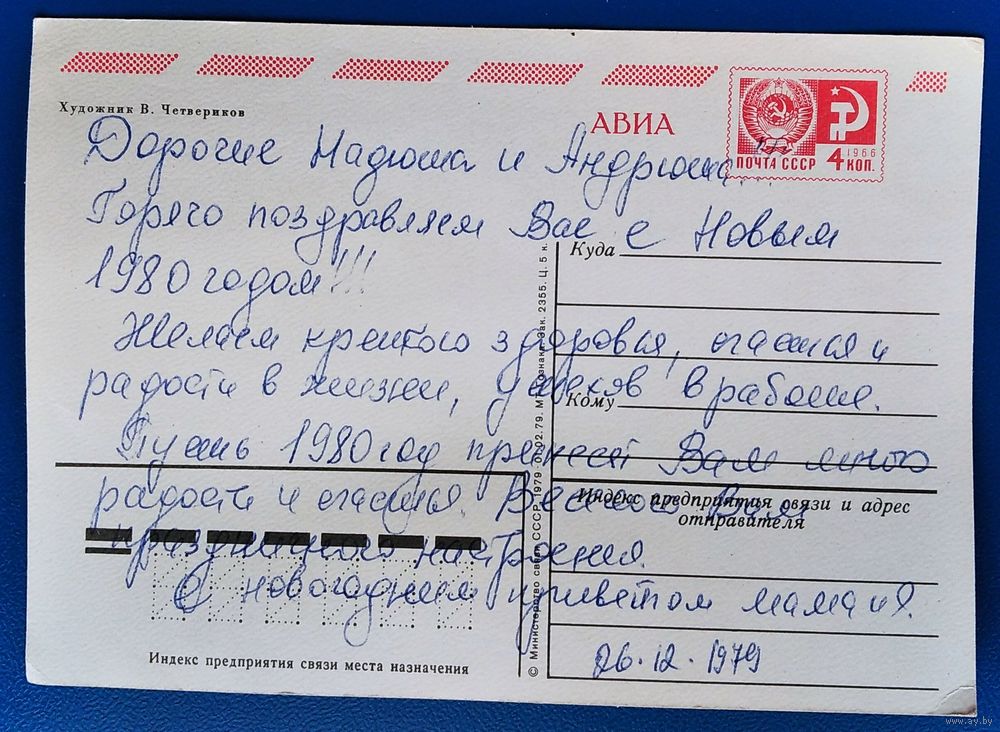 Художник В. Четвериков
АВИА
ПОЧТА СССР
1966
4 КОП.
Дорогие Надюша и Андрюша
Горячо поздравляем Вас с Новым
1980 годом!!!
Желаем крепкого здоровья, счастья и
радости в жизни, успехов в работе.
Пусть 1980 год принесёт Вам много
радости и счастья. Веселого Вам
праздничного настроения.
С новогодним приветом мама и
26.12.1979
Куда
Кому
Индекс предприятия связи и адрес
отправителя
Индекс предприятия связи места назначения
© Министерство связи СССР. 1979 01.02.79. МТ Гознака. Зак. 2355. Ц. 5 к.
www.ay.by